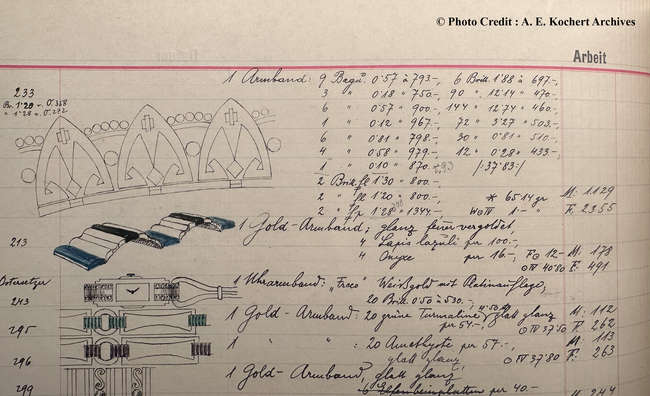 © Photo Credit : A. E. Kochert Archives
Arbeit
233
1 Armband: 9 Bagu. 0·57 à 793-, 6 Brill. 1'88 à 697.-,
3 " 0·18 " 750.-, 90 " 12·14 " 470.-
6 " 0·57 " 900.-, 144 " 12·74 " 460.-
1 " 0·12 " 967.-, 72 " 3·27 " 503.-,
6 " 0·81 " 798.- 30 " 0·81 " 510.-
4 " 0·58 " 979.-, 12 " 0·28 " 433.-,
1 " 0·10 " 870.- /·37·83·/
2 Brill 1'30 " 800.-
2 " 1'20 " 800.- * 65·14 gr M: 1129
2 " 1'28 " 1344.-, 1·- " F: 2355
213
1 Gold-Armband, glanz feuervergoldet,
4 Lapis lazuli per 100.-,
4 Onyxe per 16.-, 12- M: 178
40'80 F: 491
243
1 Uhrarmband: Weißgold mit Platinauflage,
20 Brill. 0·50 à 530.-,
295
1 Gold-Armband: 20 grüne Turmaline glatt glanz M: 112
per 54.-, 37'50 F: 262
296
1 " " : 20 Amethyste per 54.-, M: 113
glatt glanz 37'80 F: 263
299
1 Gold-Armband, glatt glanz,
6 Elfenbeinplatten per 40.- 244